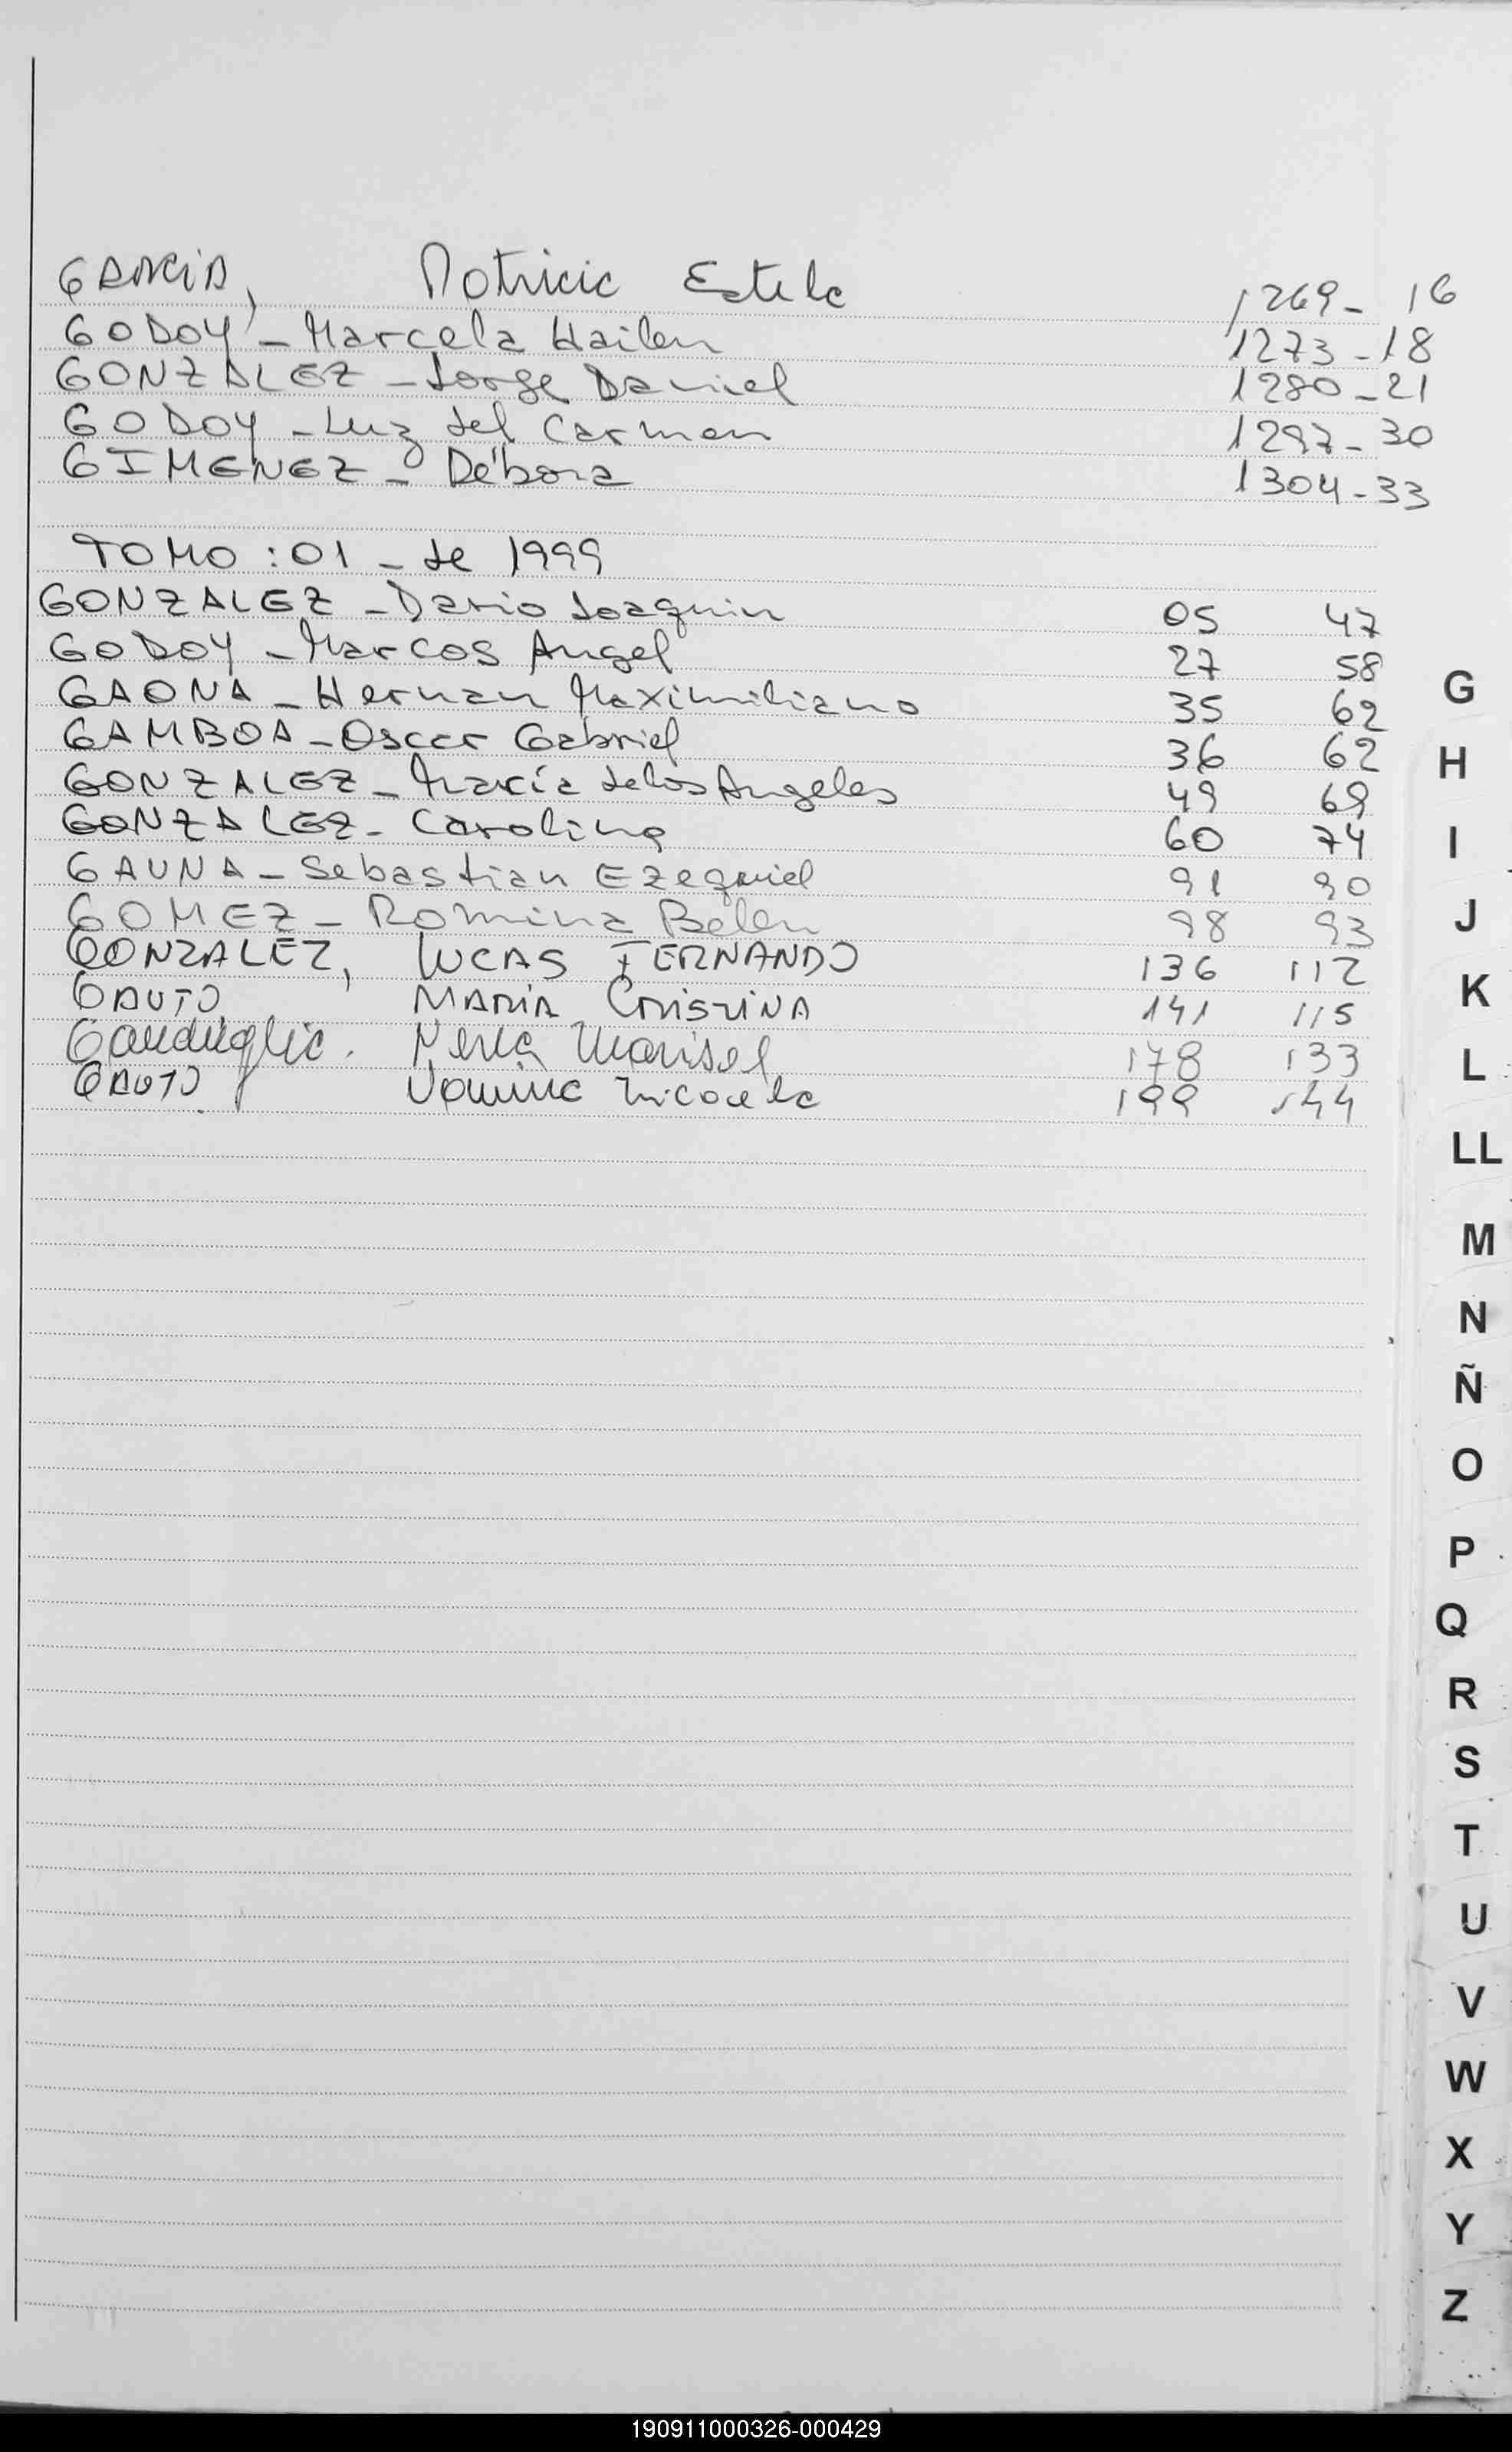 GARCIA, Patricia Estela 1269 - 16
GODOY - Marcela Hailen 1273 - 18
GONZALEZ - Jorge Daniel 1280 - 21
GODOY - Luz del Carmen 1297 - 30
GIMENEZ - Débora 1304 - 33
TOMO : 01 - de 1999
GONZALEZ - Dario Joaquin 05 47
GODOY - Marcos Angel 27 58
GAONA - Hernan Maximiliano 35 62
GAMBOA - Oscar Gabriel 36 62
GONZALEZ - María de los Angeles 49 69
GONZALEZ - Carolina 60 74
GAUNA - Sebastian Ezequiel 91 90
GOMEZ - Romina Belen 98 93
GONZALEZ, LUCAS FERNANDO 136 112
GAUTO MARIA CRISTINA 141 115
Marisel 178 133
GAUTO Micaela 199 144
G
H
I
J
K
L
LL
M
N
Ñ
O
P
Q
R
S
T
U
V
W
X
Y
Z
190911000326-000429